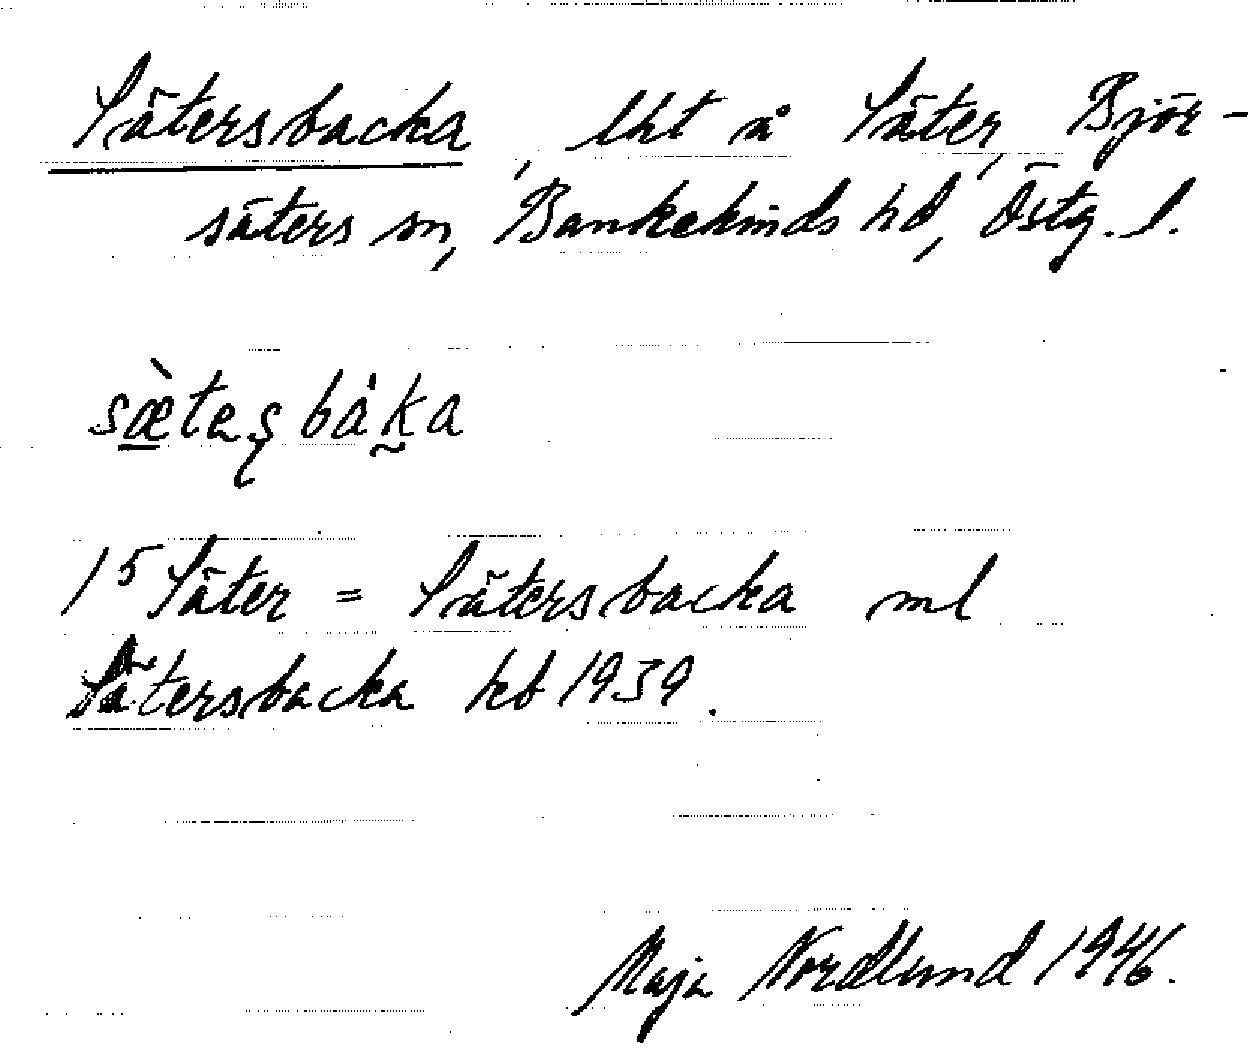 Sätersbacka, lht å Säter, Björ-
säters sn, Bankekinds hd, Östg. l.
sæ̀teʂbàka
1⁵ Säter = Sätersbacka ml
Sätersbacka kb 1939.
Maja Nordlund 1946.